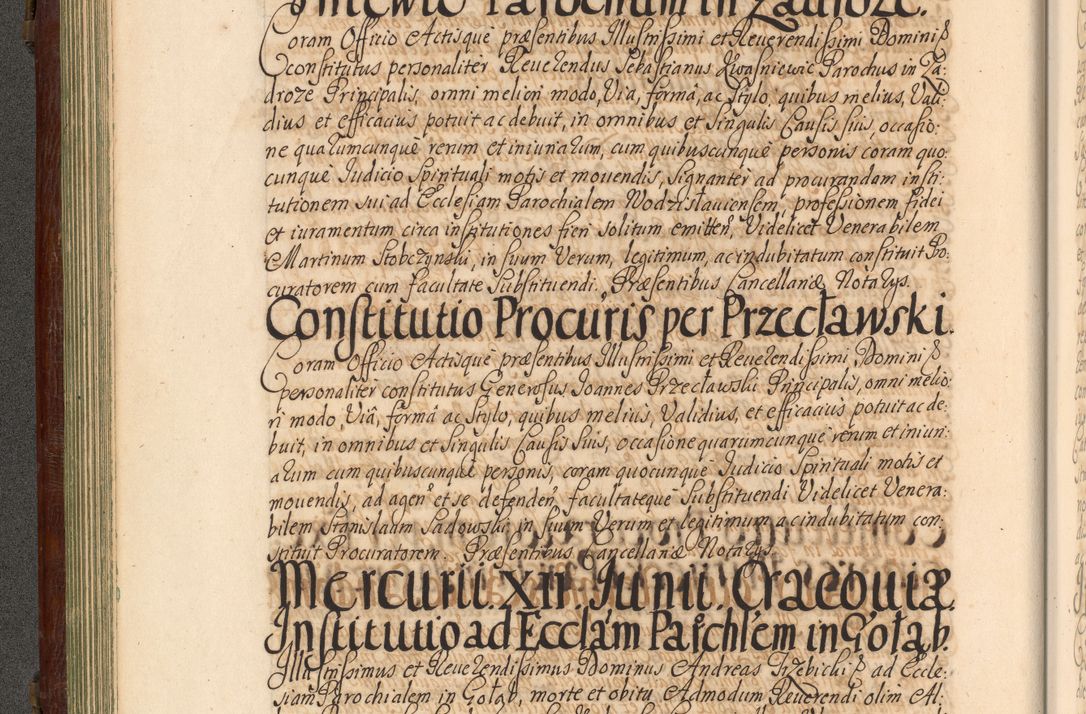 Coram Officio Actisque præsentibus Illustrissimi et Reverendissimi Domini
constitutus personaliter Reverendus Sebastianus Kwasniewic Parochus in Za:
droze Principalis, omni meliori modo, Via, forma, ac Stylo, quibus melius, Vali:
dius et efficacius potuit ac debuit, in omnibus et Singulis Causis suis, occasio:
ne quarumcunque rerum et iniuriarum, cum quibuscunque personis coram quo:
cunque Judicio Spirituali motis et movendis, signanter ad procurandam insti:
tutionem sui ad Ecclesiam Parochialem Wodzislaviensem, professionem fidei
et iuramentum circa institutiones fieri solitum emitten, Videlicet Venerabilem
Martinum Stobczynski, in suum Verum, legitimum, ac indubitatum constituit Pro:
curatorem cum facultate Substituendi. Præsentibus Cancellariæ Notarys.
Constitutio Procuris per Przecławski.
Coram Officio Actisque præsentibus Illustrissimi et Reverendissimi Domini
personaliter constitutus Generosus Joannes Przecławski Principalis, omni melio:
ri modo, Viâ, formâ ac Stylo, quibus melius, Validius, et efficacius potuit ac de:
buit, in omnibus et Singulis Causis Suis, occasione quarumcunque rerum et iniuri:
arum cum quibuscunque personis, coram quocunque Judicio Spirituali motis et
movendis, ad agen et se defenden, facultateque Substituendi Videlicet Venera:
bilem Stanislaum Sadowski in suum Verum et legitimum ac indubitatum con:
stituit Procuratorem. Præsentibus Cancellariæ Notarys.
Mercurii. XII. Junii. Cracoviæ.
Institutio ad Ecclam Parchlem in Gołąb.
Illustrissimus et Reverendissimus Dominus Andreas Trzebicki ad Eccle:
siam Parochialem in Gołąb, morte et obitu Admodum Reverendi olim Al: